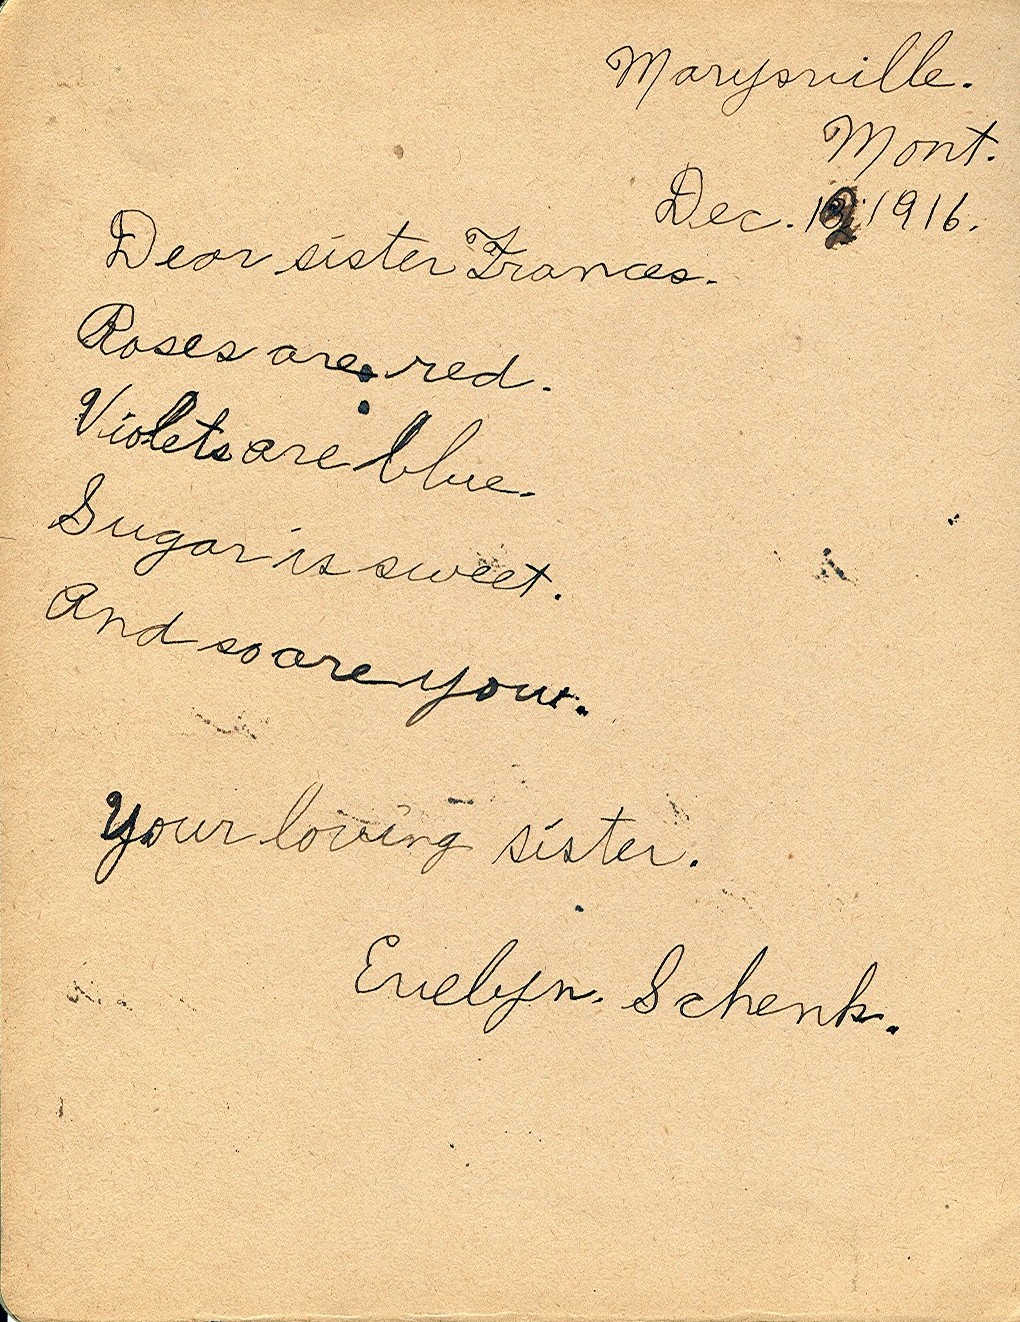 Marysville.
Mont.
Dec. 12 1916.
Dear sister Frances.
Roses are red.
Violets are blue.
Sugar is sweet.
And so are you.
Your loving sister.
Evelyn. Schenk.